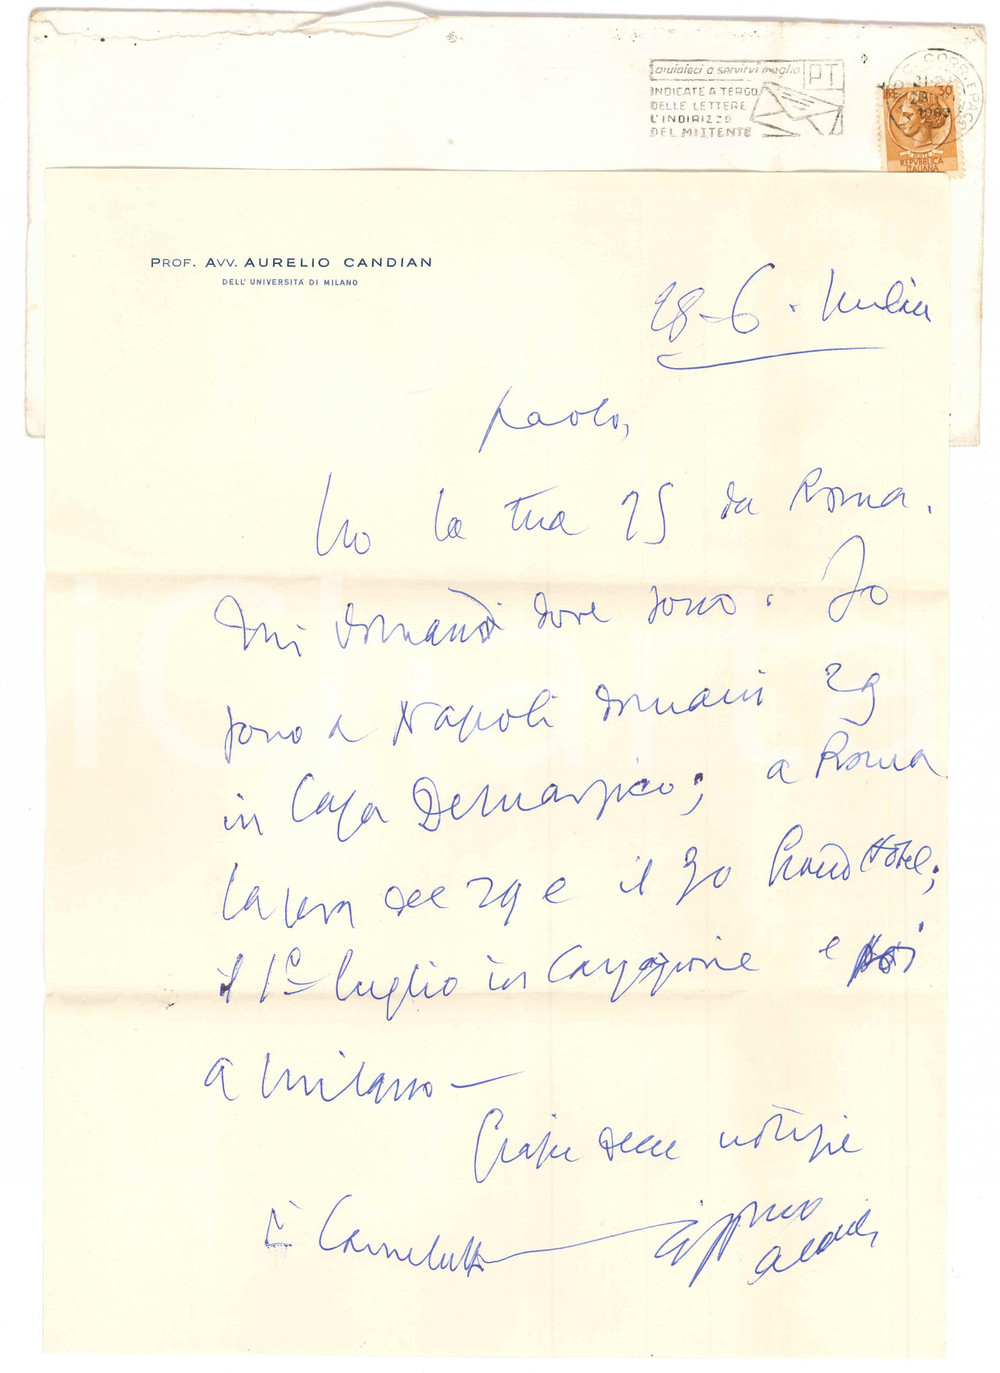 aiutateci a servirvi meglio
PT
INDICATE A TERGO
DELLE LETTERE
L'INDIRIZZO
DEL MITTENTE
30
REPUBBLICA
ITALIANA
PROF. AVV. AURELIO CANDIAN
DELL'UNIVERSITÀ DI MILANO
28-6.
Paolo,
ho la tua 25 da Roma.
Mi domandi dove sono. Io
sono a Napoli domani 29
in Casa Demarsico; a Roma
la sera del 29 e il 30 Grand Hotel;
il 1° luglio in Cassazione e poi
a Milano —
Grazie delle notizie
Carnelutti